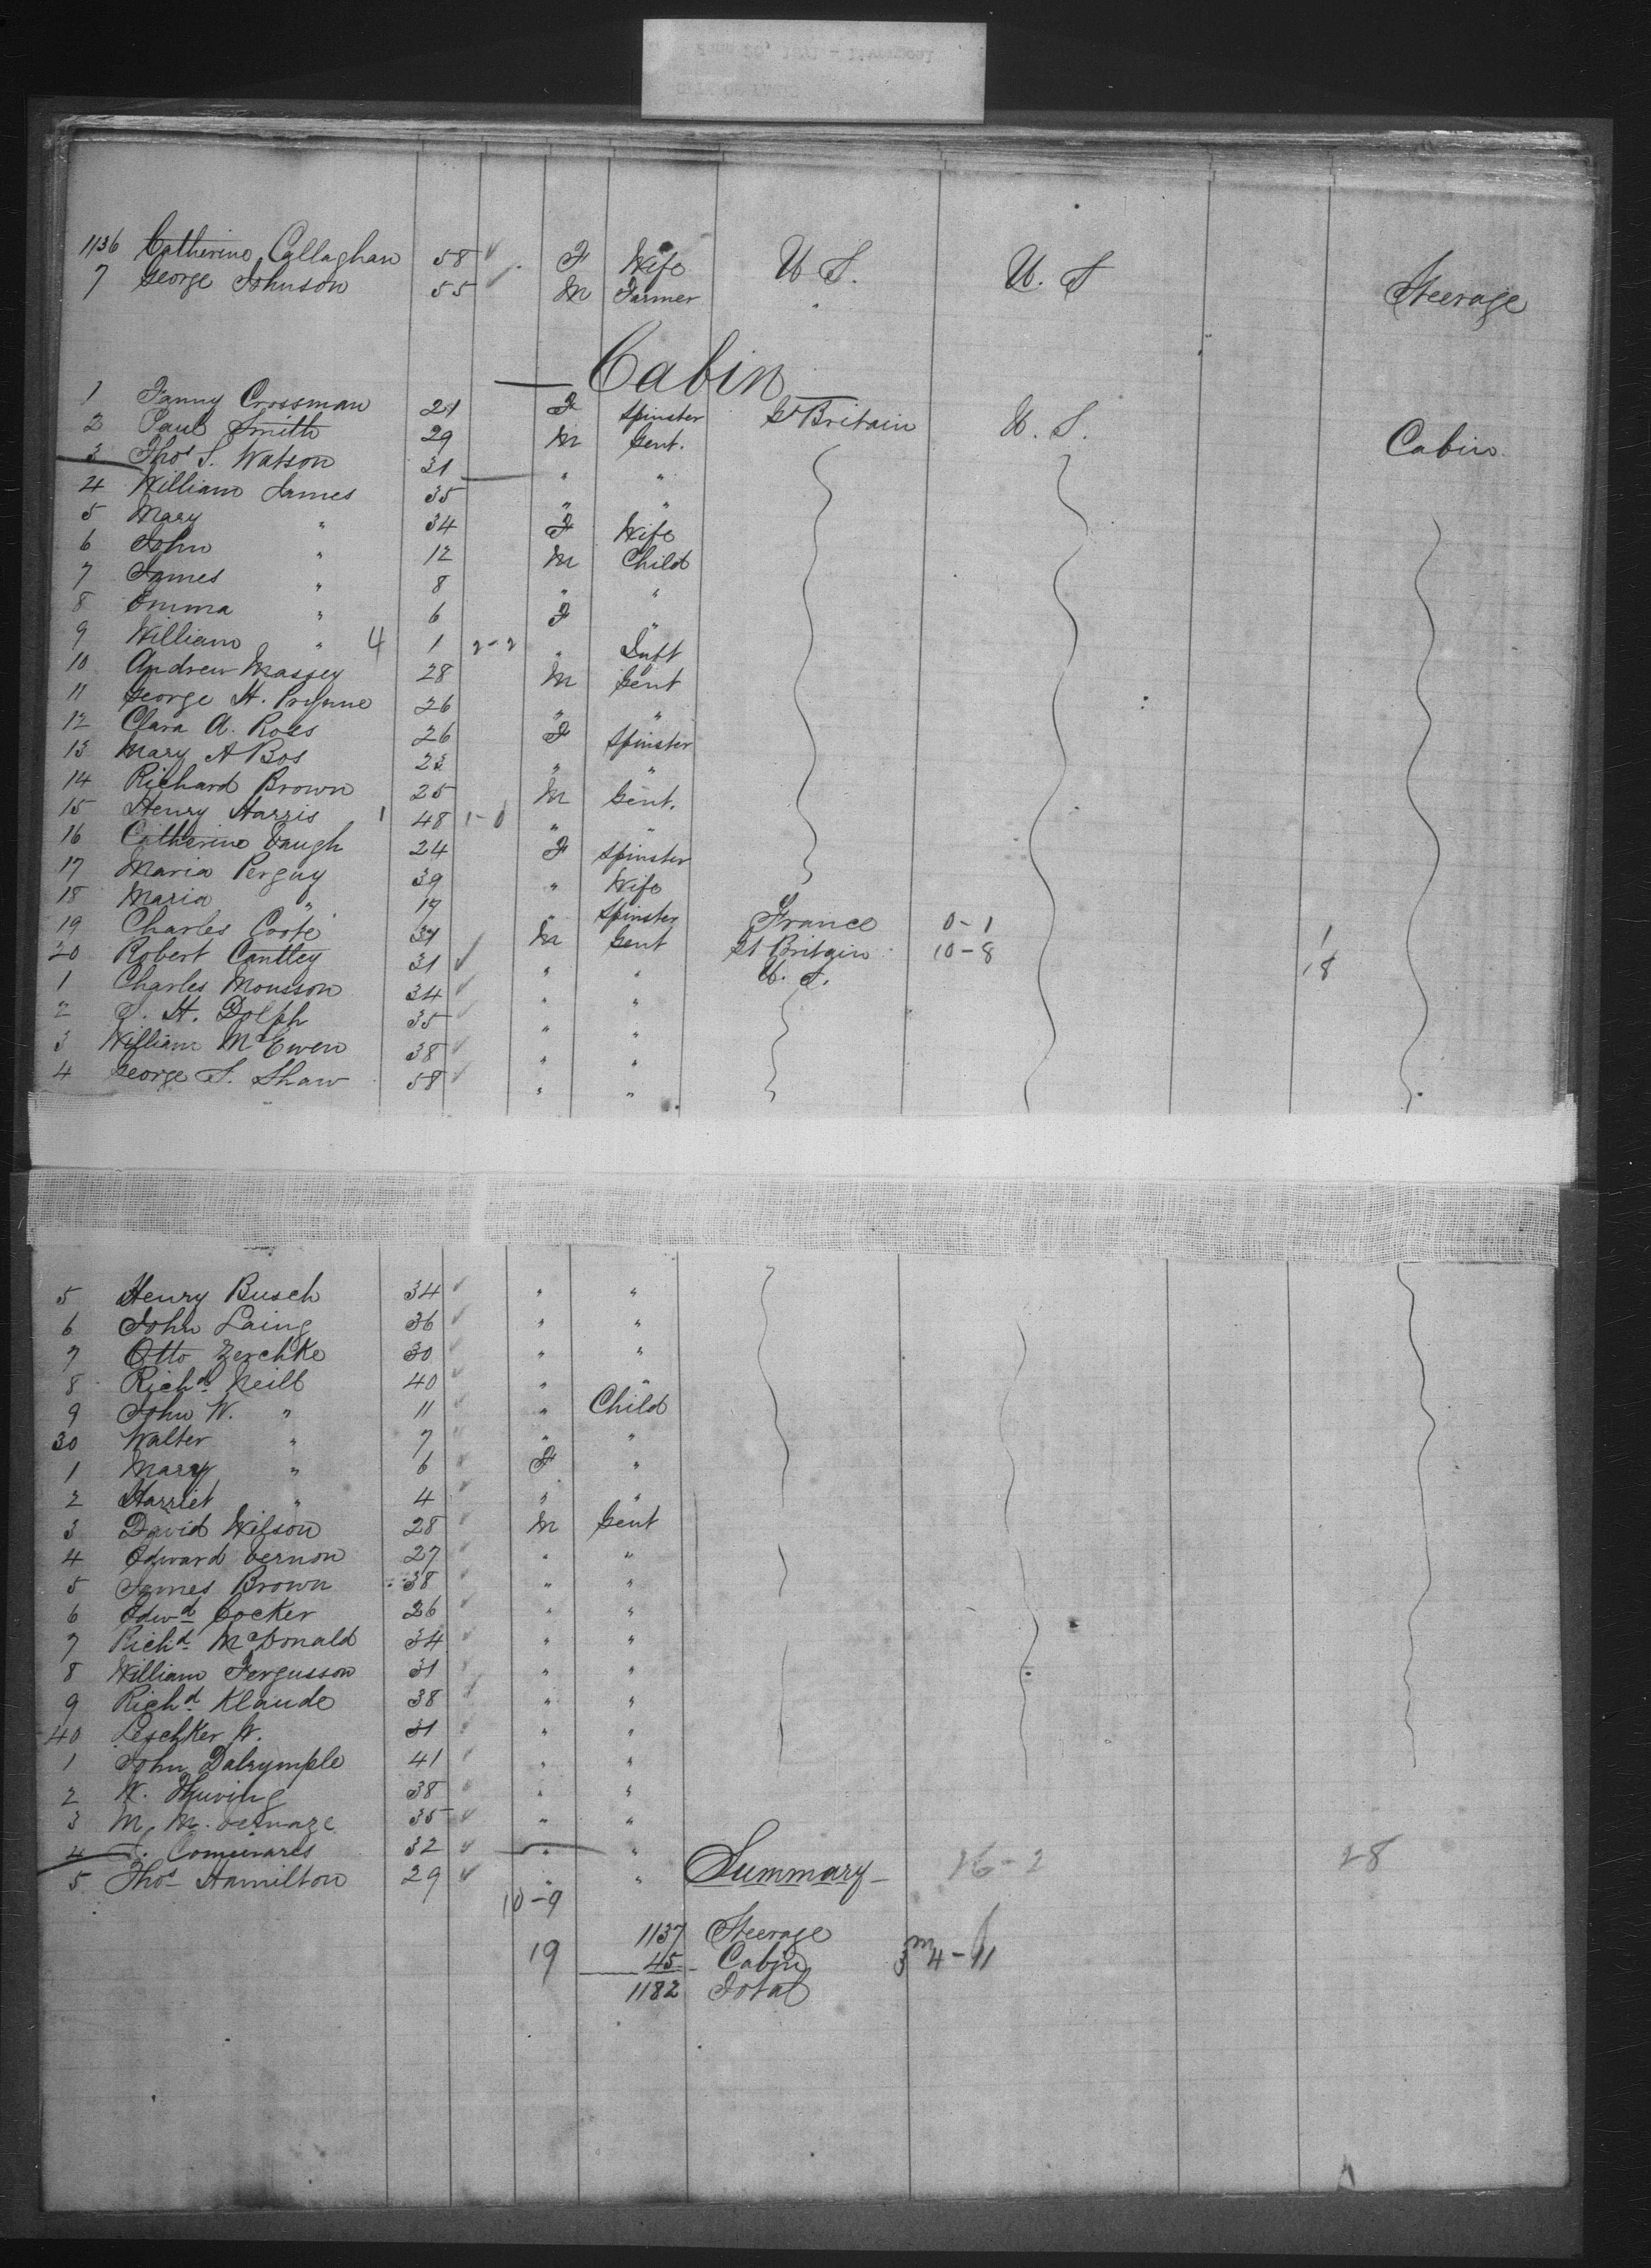 1136 Catherine Callaghan 58 F Wife U S. U. S Steerage
7 George Johnson 55 M Farmer
Cabin
1 Fanny Crossman 21 F Spinster Gt Britain U. S. Cabin
2 Paul Smith 29 M Gent.
3 Thos S. Watson 31 " "
4 William James 35 " "
5 Mary " 34 F Wife
6 John " 12 M Child
7 James " 8 " "
8 Emma " 6 F "
9 William " 4 1 2-2 " Inft
10 Andrew Massey 28 M Gent
11 George H. Prynne 26 " "
12 Clara A. Roes 26 F Spinster
13 Mary A Bos 23 " "
14 Richard Brown 25 M Gent.
15 Henry Harris 1 48 1-0 " "
16 Catherine Waugh 24 F Spinster
17 Maria Perguy 39 " Wife
18 Maria " 17 " Spinster France 0-1 1
19 Charles Coote 31 M Gent Gt Britain 10-8 18
20 Robert Cantley 31 " " U. S.
1 Charles Mousson 34 " "
2 J. H. Dolph 35 " "
3 William McEwen 38 " "
4 George S. Shaw 58 " "
5 Henry Busch 34 " "
6 John Laing 36 " "
7 Otto Zerchke 30 " "
8 Richd Neill 40 " "
9 John W. " 11 " Child
30 Walter " 7 " "
1 Mary " 6 F "
2 Harriet " 4 " "
3 David Wilson 28 M Gent
4 Edward Vernon 27 " "
5 James Brown 38 " "
6 Edwd Cocker 26 " "
7 Richd McDonald 34 " "
8 William Fergusson 31 " "
9 Richd Klaude 38 " "
40 Leschker W. 31 " "
1 John Dalrymple 41 " "
2 W. 38 " "
3 M. M. 35 " "
4 32 " "
5 Thos Hamilton 29 " " Summary 26-2 28
10-9
1137 Steerage
19 45 Cabin
1182 Total